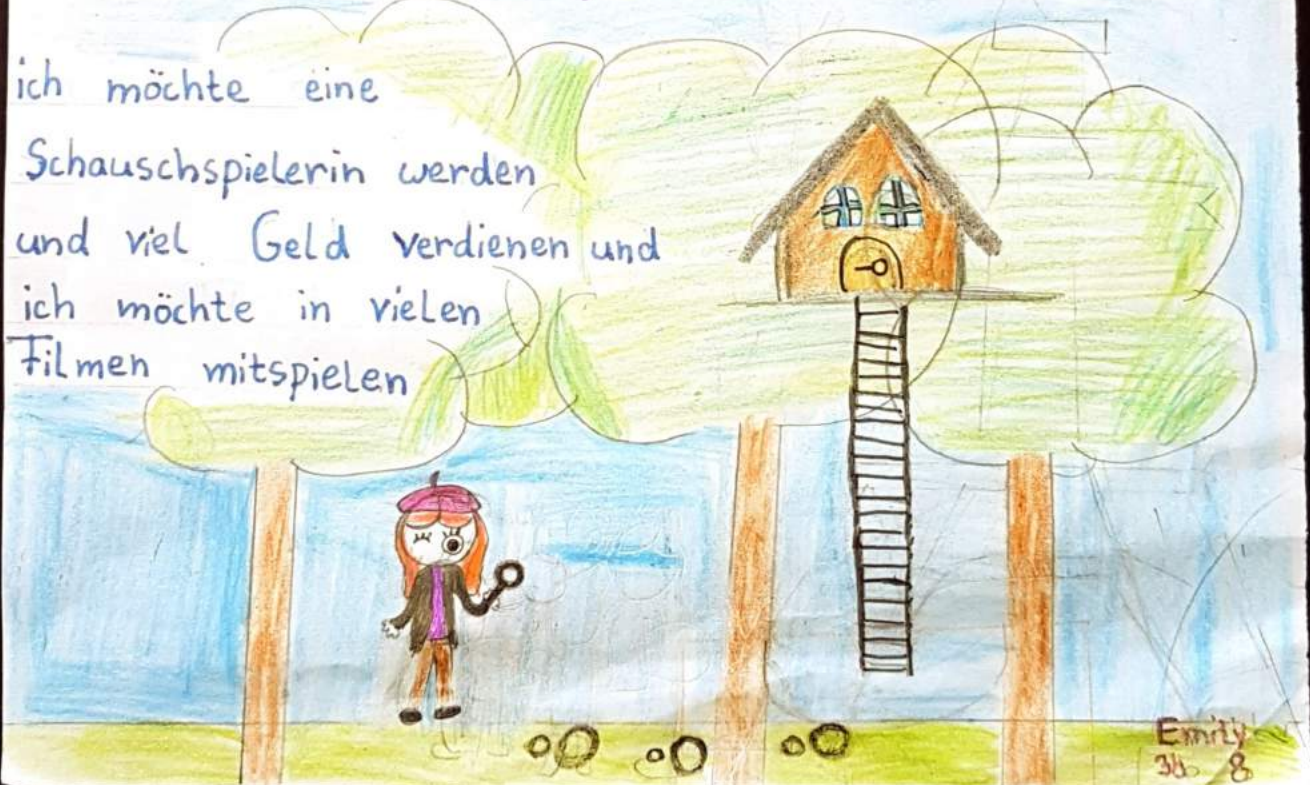 ich möchte eine
Schauschspielerin werden
und viel Geld verdienen und
ich möchte in vielen
Filmen mitspielen
Emily
3b 8